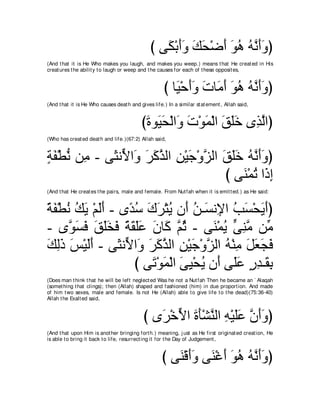 ﴿ وَأَنَّهُ هُوَ أَضْحَكَ وَأَبْكَى ﴾
(And that it is He Who makes you laugh, and makes you weep.) means that He created in His
creatures the ability to laugh or weep and the causes for each of these opposites,
﴿ وَأَنَّهُ هُوَ أَمَاتَ وَأَحْيَا ﴾
(And that it is He Who causes death and gives life.) In a similar statement, Allah said,
﴿الَّذِى خَلَقَ الْمَوْتَ وَالْحَيَوةَ﴾
(Who has created death and life.)(67:2) Allah said,
﴿وَأَنَّهُ خَلَقَ الزَّوْجَيْنِ الذَّكَرَ وَالأُنثَى - مِن نُّطْفَةٍ
إِذَا تُمْنَى ﴾
(And that He creates the pairs, male and female. From Nutfah when it is emitted.) as He said:
﴿أَيَحْسَبُ الإِنسَـنُ أَن يُتْرَكَ سُدًى - أَلَمْ يَكُ نُطْفَةً
مِّن مَّنِىٍّ يُمْنَى - ثُمَّ كَانَ عَلَقَةً فَخَلَقَ فَسَوَّى -
فَجَعَلَ مِنْهُ الزَّوْجَيْنِ الذَّكَرَ وَالأُنثَى - أَلَيْسَ ذَلِكَ
بِقَـدِرٍ عَلَى أَن يُحْيِىَ الْمَوْتَى ﴾
(Does man think that he will be left neglected Was he not a Nutfah Then he became an `Alaqah
(something that clings); then (Allah) shaped and fashioned (him) in due proportion. And made
of him two sexes, male and female. Is not He (Allah) able to give life to the dead)(75:36-40)
Allah the Exalted said,
﴿ وَأَنَّ عَلَيْهِ النَّشْأَةَ الأُخْرَى ﴾
(And that upon Him is another bringing forth.) meaning, just as He first originated creation, He
is able to bring it back to life, resurrecting it for the Day of Judgement,
﴿ وَأَنَّهُ هُوَ أَغْنَى وَأَقْنَى ﴾